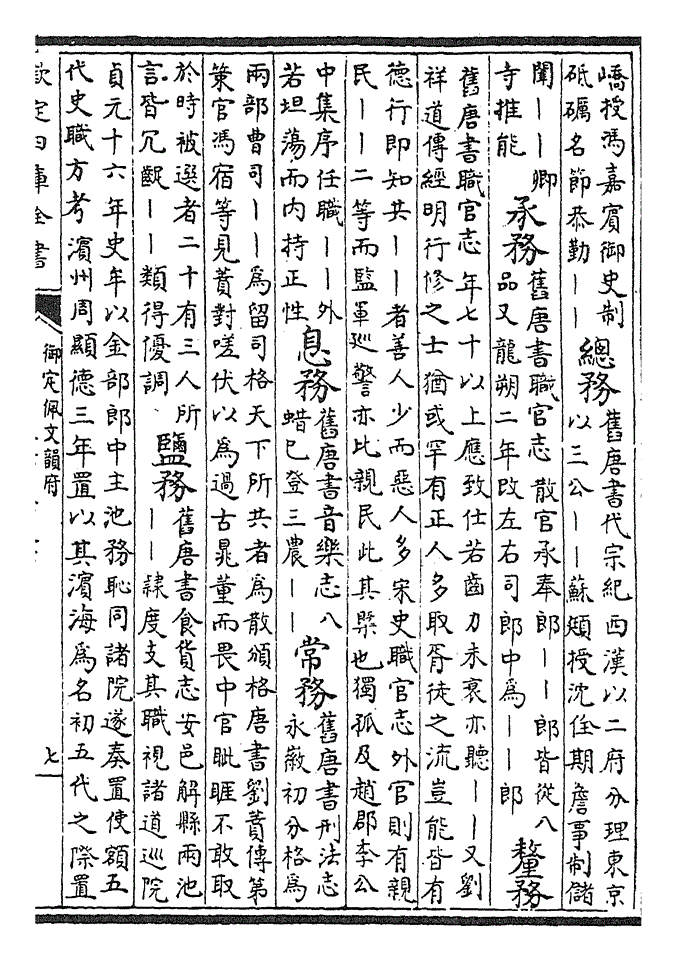 嶠授馮嘉賓御史制
砥礪名節恭勤丨丨
總務
舊唐書代宗紀西漢以二府分理東京
以三公丨丨蘇頲授沈佺期詹事制儲
闈丨丨卿
寺推能
承務
舊唐書職官志散官承奉郎丨丨郎皆從八
品又龍朔二年改左右司郎中爲丨丨郎
釐務
舊唐書職官志年七十以上應致仕若齒力未衰亦聽丨丨又劉
祥道傳經明行修之士猶或罕有正人多取胥徒之流豈能皆有
德行即知共丨丨者善人少而惡人多宋史職官志外官則有親
民丨丨二等而監軍巡警亦比親民此其槩也獨孤及趙郡李公
中集序任職丨丨外
若坦蕩而内持正性
息務
舊唐書音樂志八
蜡已登三農丨丨
常務
舊唐書刑法志
永徽初分格爲
兩部曹司丨丨爲留司格天下所共者爲散頒格唐書劉蕡傳第
策官馮宿等見蕡對嗟伏以爲過古晁董而畏中官眦睚不敢取
於時被選者二十有三人所
言皆冗齪丨丨類得優調
鹽務
舊唐書食貨志安邑解縣兩池
丨丨隷度支其職視諸道巡院
貞元十六年史牟以金部郎中主池務恥同諸院遂奏置使額五
代史職方考濱州周顯德三年置以其濱海爲名初五代之際置
欽定四庫全書
御定佩文韻府
七